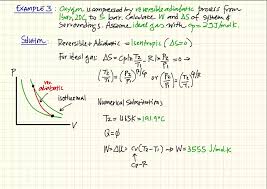 EXAMPLE 3: Oxygen is compressed by reversible adiabatic process from
1 bar, 20C to 5 bar. Calculate W and ΔS of system &
surroundings. Assume ideal gas with cp=29J/mol.K.
Solution. Reversible + Adiabatic → Isentropic (ΔS=0)
For ideal gas: ΔS = Cp ln T2/T1 - R ln P2/P1 = 0 →
P
rev. adiabatic
isothermal
V
Numerical Substitutions
T2 = 465K = 191.9°C
Q = 0
W = ΔU = cv(T2-T1) → W = 3555 J/mol.K
Cp-R